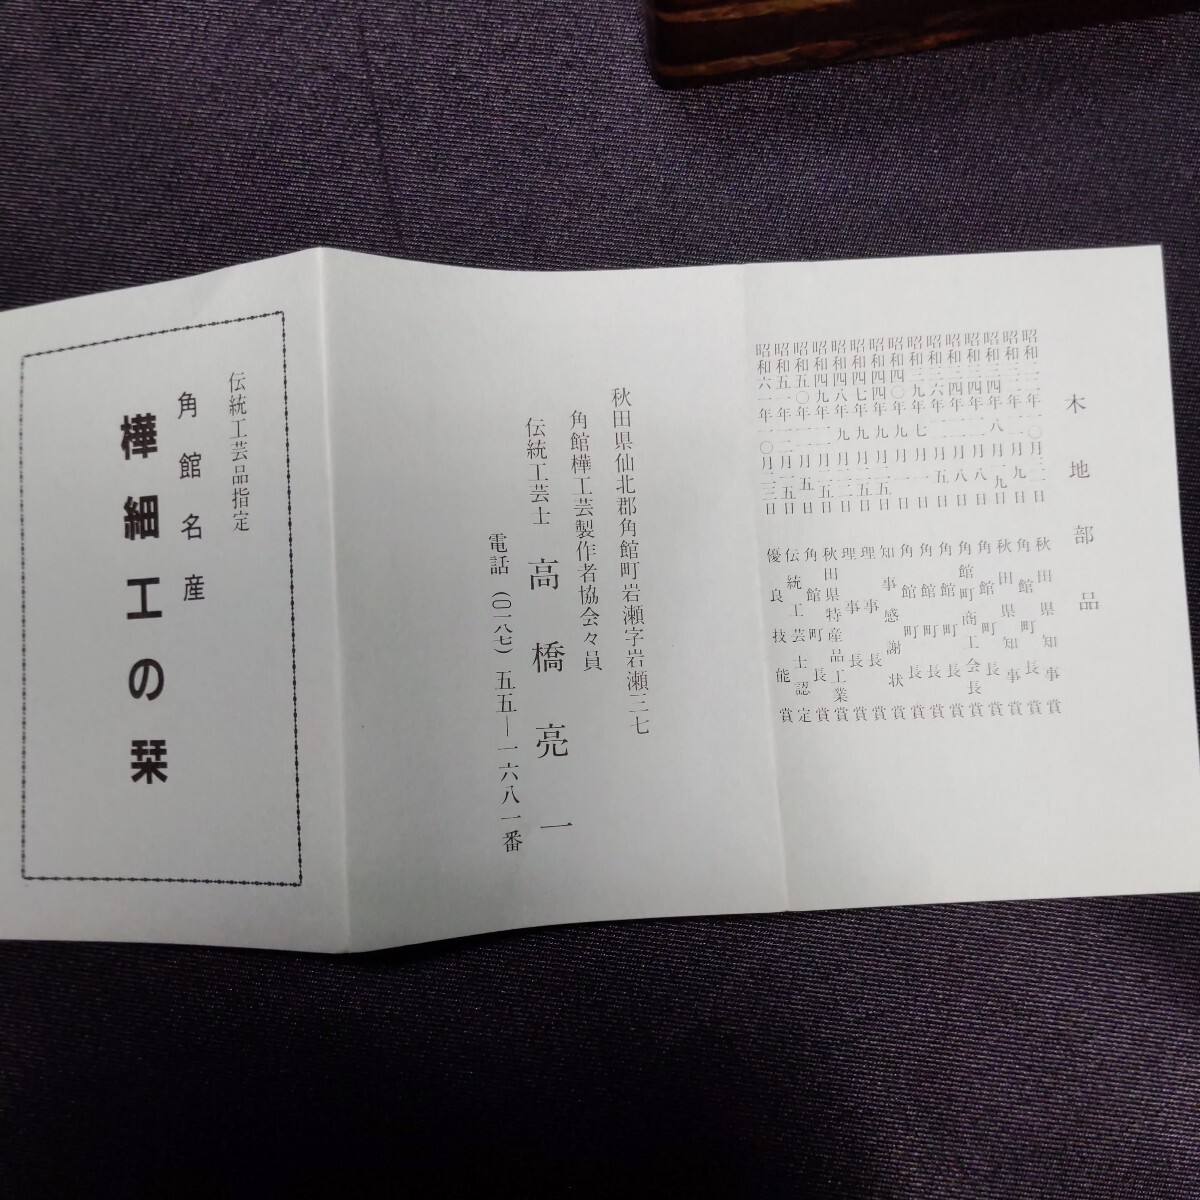 木地部品
昭和 年 月 日 秋田県知事賞
昭和 年 月 日 角館町長賞
昭和 年八月 日 秋田県知事賞
昭和 四年 月八日 角館町長賞
昭和 四年 月八日 角館町商工会長賞
昭和 六年 月五日 角館町長賞
昭和三九年七月一日 角館町長賞
昭和四〇年九月一日 角館町長賞
昭和四四年九月 五日 知事感謝状賞
昭和四七年九月 日 理事長賞
昭和四八年九月 日 理事長賞
昭和四九年 月 五日 秋田県特産品工業賞
昭和五〇年 月五日 角館町長賞
昭和五一年 月 五日 伝統工芸士認定
昭和六一年一〇月 三日 優良技能賞
秋田県仙北郡角館町岩瀬字岩瀬三七
角館樺工芸製作者協会々員
伝統工芸士 高橋亮一
電話(〇一八七)五五―一六八一番
伝統工芸品指定
角館名産
樺細工の栞